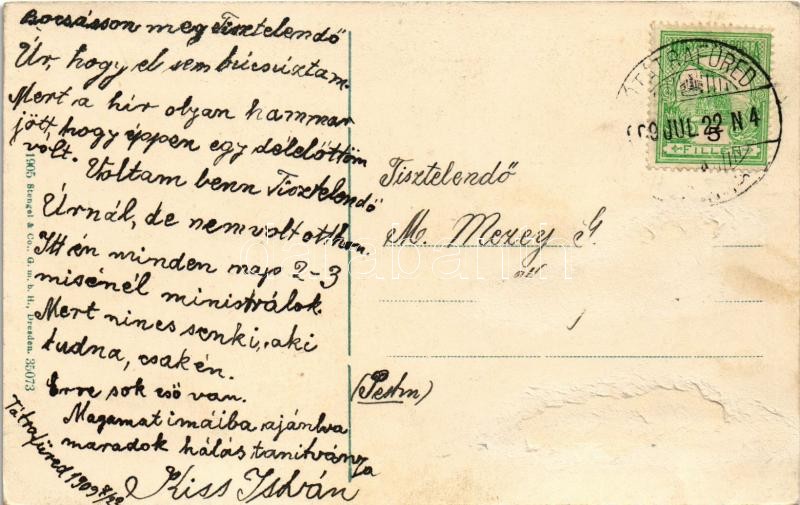 Bocsásson meg Tisztelendő
Úr, hogy el sem búcsúztam.
Mert a hír olyan hammar
jött, hogy éppen egy délelőttöm
volt. Voltam benn Tisztelendő
Úrnál, de nem volt otthon.
Itt én minden nap 2-3
misénél ministrálok.
Mert nincs senki, aki
tudna, csak én.
Erre sok eső van.
Magamat imáiba ajánlva
maradok hálás tanitványa
Kiss István
Tátrafüred 1909 7/22
1905 Stengel & Co., G. m. b. H., Dresden. 35073
TÁTRAFÜRED
909 JUL 22 N 4
5
FILLÉR
Tisztelendő
M. Mezey G.
(Pestm)
darabanth